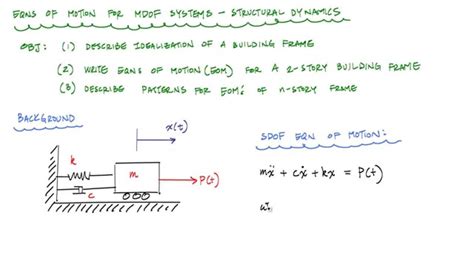 EQNS OF MOTION FOR MDOF SYSTEMS - STRUCTURAL DYNAMICS
OBJ: (1) DESCRIBE IDEALIZATION OF A BUILDING FRAME
(2) WRITE EQNS OF MOTION (EOM) FOR A 2-STORY BUILDING FRAME
(3) DESCRIBE PATTERNS FOR EOM: OF n-STORY FRAME
BACKGROUND
x(t)
k
m
c
P(t)
SDOF EQN OF MOTION:
mẍ + cẋ + kx = P(t)